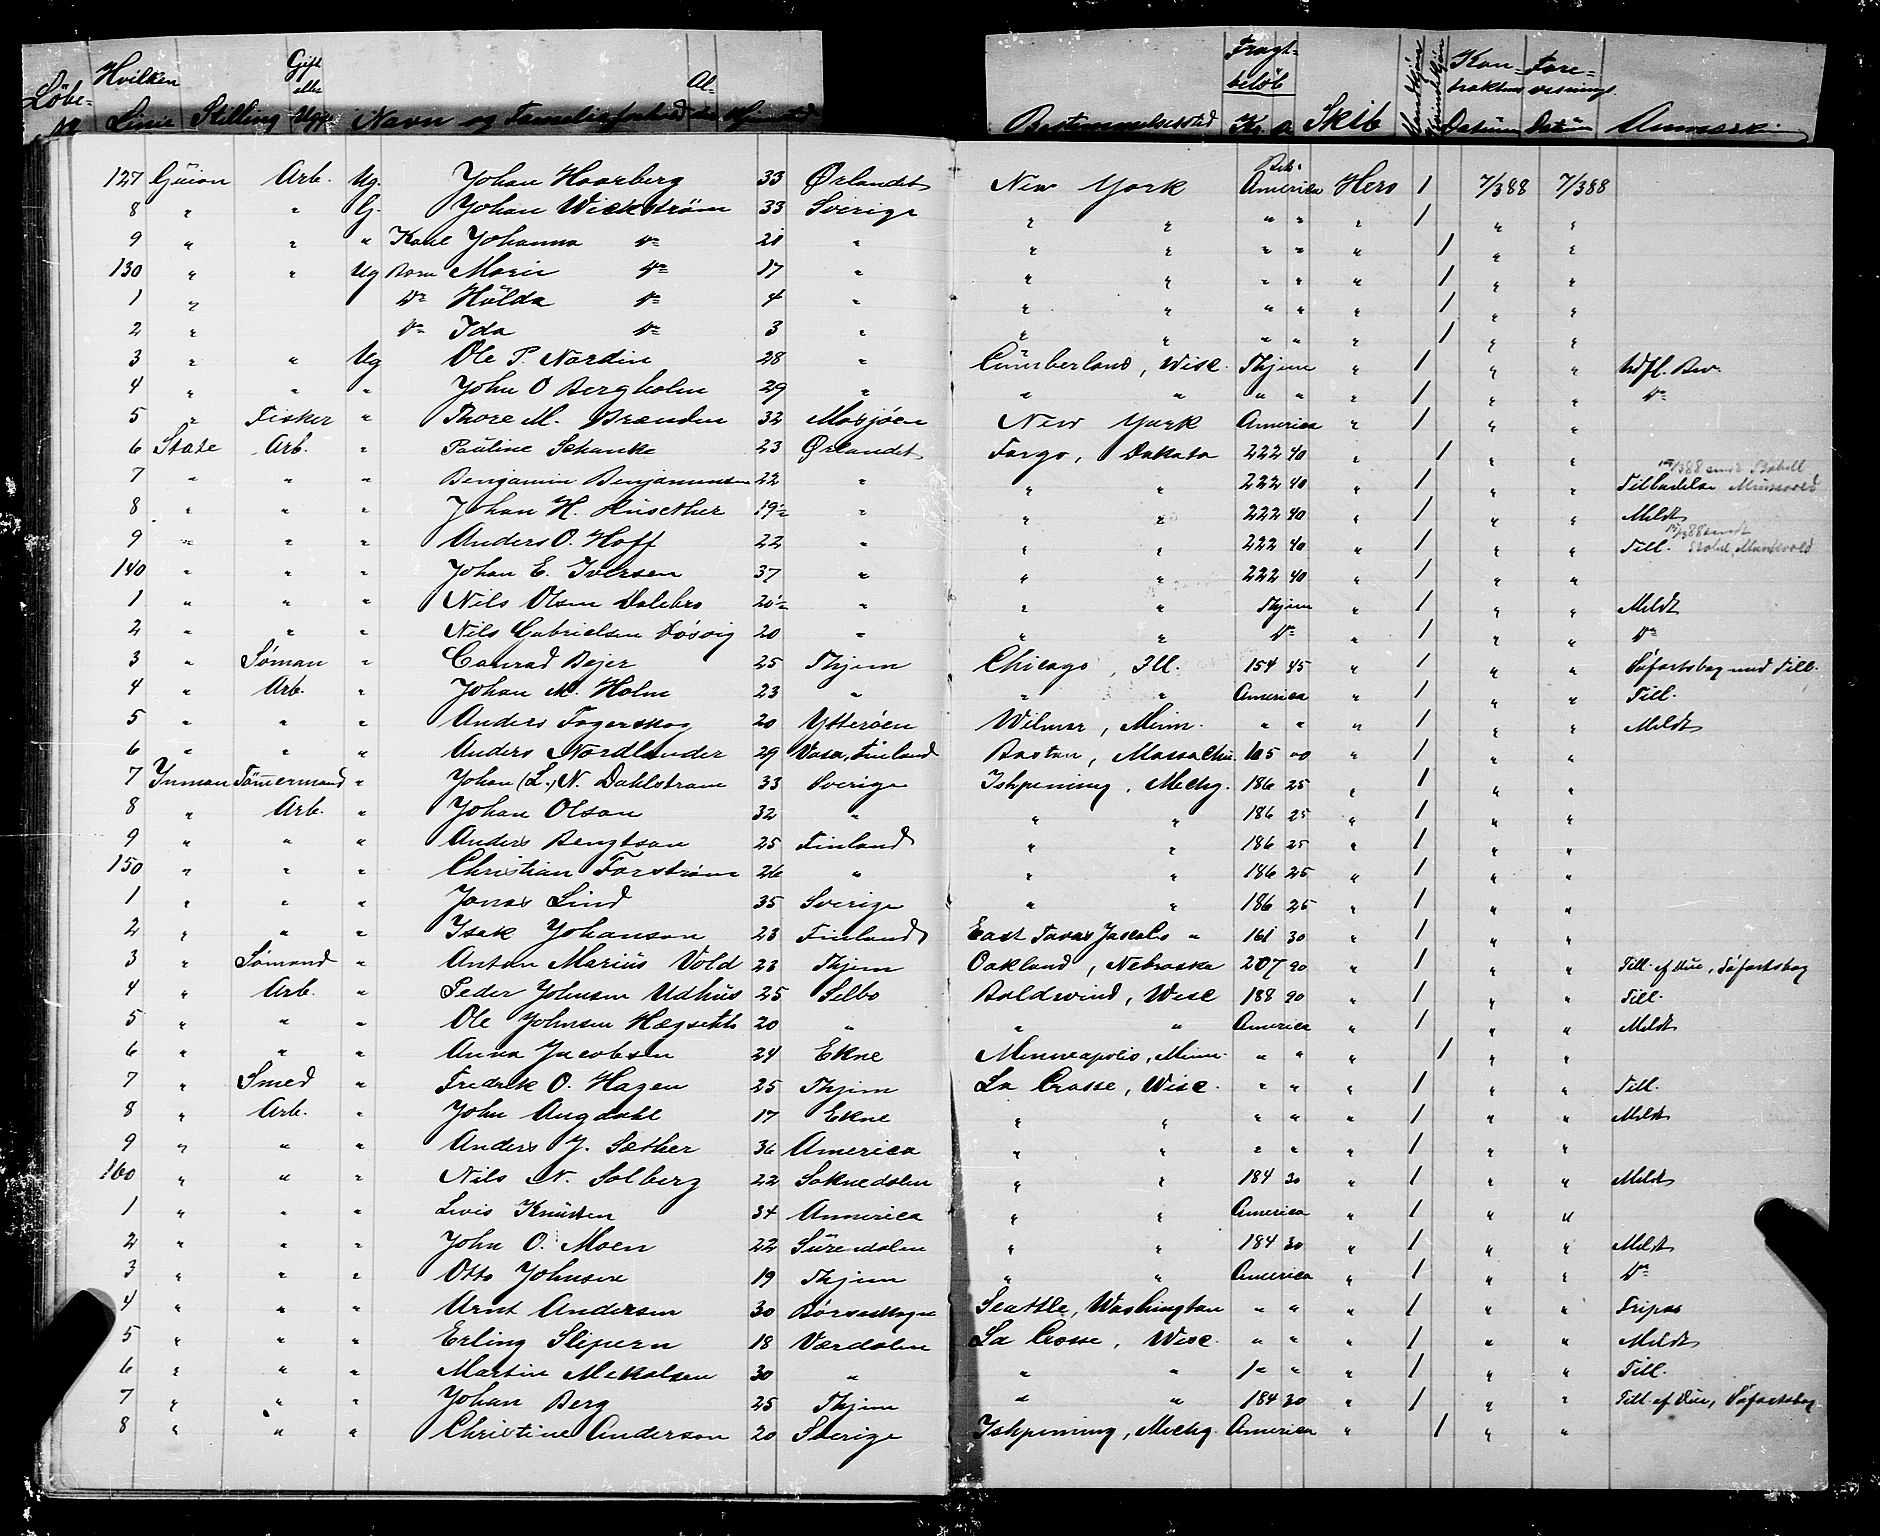 Löbe- Hvilken Linie Stilling Gift eller Ugft Navn og Familieforhold Al- Hjemsted Bestemmelsessted Fragt- beløb Kr. ø Skib Kon- trakthens Datum Fore- visnings Datum Anmærk.
127 Guion Arb. Ug. Johan Haarberg 33 Ørlandet New York Bet. i America Hero 1 7/3 88 7/3 88
8 " " G. Johan Wickström 33 Sverige " " " " " 1 " "
9 " " " Kone Johanna Do 21 " " " " " " 1 " "
130 " " Ug Barn Marie Do 17 " " " " " " 1 " "
1 " Do Hulda Do 4 " " " " " " 1 " "
2 " Do Ida Do 3 " " " " " " 1 " "
3 " " Ug Ole P. Nordin 28 " Cumberland, Wisc. Thjem " 1 " " Udfl. Bev.
4 " " " John O Bergholm 29 " " " " " " 1 " " Do
5 " Fisker " Thore M. Brænden 32 Mosjøen New York America " 1 " "
6 State Arb. " Pauline Schanke 23 Ørlandet Fargo, Dakota 222 40 " 1 " "
7 " " " Benjamin Benjaminsen 22 " " " 222 40 " 1 " " Tilladelse
8 " " " Johan H. Husether 19½ " " " 222 40 " 1 " " Meldt
9 " " " Anders O. Hoff 22 " " " 222 40 " 1 " " Till.
140 " " " Johan E. Iversen 37 " " " 222 40 " 1 " "
1 " " " Nils Olsen Dalebro 20½ " " " Thjem " 1 " " Meldt
2 " " " Nils Gabrielsen Døsvig 20 " " " Do " 1 " " Do
3 " Söman " Conrad Bejer 25 Thjem Chicago, Ill. 154 45 " 1 " " Søfartsbog med Till.
4 " Arb. " Johan M. Holm 23 " " " America " 1 " " Till.
5 " " " Anders Fagerskog 20 Ytterøen Wilmar, Minn. " " " 1 " " Meldt
6 " " " Anders Nordlander 29 Vasa, Finland Boston, Massachu. 105 00 " 1 " "
7 Inman Tömmermand " Johan (L.) N. Dahlstrom 33 Sverige Ishpeming, Mechg. 186 25 " 1 " "
8 " Arb. " Johan Olson 32 " " " 186 25 " 1 " "
9 " " " Anders Bengtson 25 Finland " " 186 25 " 1 " "
150 " " " Christian Forström 26 " " " 186 25 " 1 " "
1 " " " Jonas Lind 35 Sverige " " 186 25 " 1 " "
2 " " " Isak Johanson 23 Finland East Tavas " 161 30 " 1 " "
3 " Sømand " Anton Marius Vold 23 Thjem Oakland, Nebraska 207 90 " 1 " " Till. af Due, Søfartsbog
4 " Arb. " Peder Johnsen Udhus 25 Selbo Baldwind, Wisc 188 90 " 1 " " Till.
5 " " " Ole Johnsen Hægseth 20 " " " America " 1 " " Meldt
6 " " " Anna Jacobsen 24 Ekne Minneapolis, Minn. " " " 1 " "
7 " Smed " Fredrik O. Hagen 25 Thjem La Crosse, Wisc. " " " 1 " " Till.
8 " Arb. " John Augdahl 17 Ekne " " " " " 1 " " Meldt
9 " " " Anders J. Sæther 36 America " " " " " 1 " "
160 " " " Nils N. Solberg 22 Soknedalen " " 184 30 " 1 " " Meldt
1 " " " Levis Knudsen 34 America " " America " 1 " "
2 " " " John O. Moen 22 Surendalen " " 184 30 " 1 " " Meldt
3 " " " Otto Johnsen 19 Thjem " " America " 1 " " Do
4 " " " Arnt Andersen 30 Børseskogn Seattle, Washington " " " 1 " " Fripas
5 " " " Erling Slipern 18 Værdalen La Crosse, Wisc. " " " 1 " " Meldt
6 " " " Martin Mekalsen 30 " " " " " " 1 " " Till.
7 " " " Johan Berg 25 Thjem " " 184 30 " 1 " " Till. af Due, Søfartsbog
8 " " " Christine Anderson 20 Sverige Ishpeming, Mechg. America " 1 " "